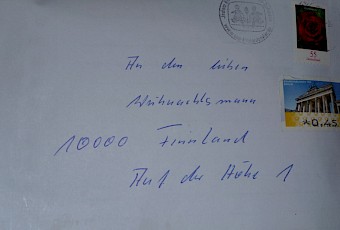 55
0,45
An den lieben
Weihnachtsmann
10000 Finnland
Auf der Höhe 1